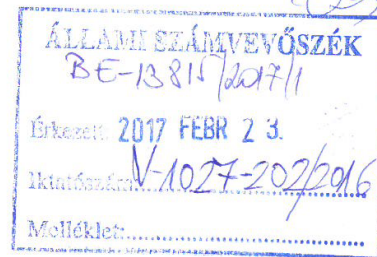 ÁLLAMI SZÁMVEVŐSZÉK
BE-13815/2017/1
Érkezett: 2017 FEBR 2 3.
Iktatószám: V-1027-202/2016
Melléklet: